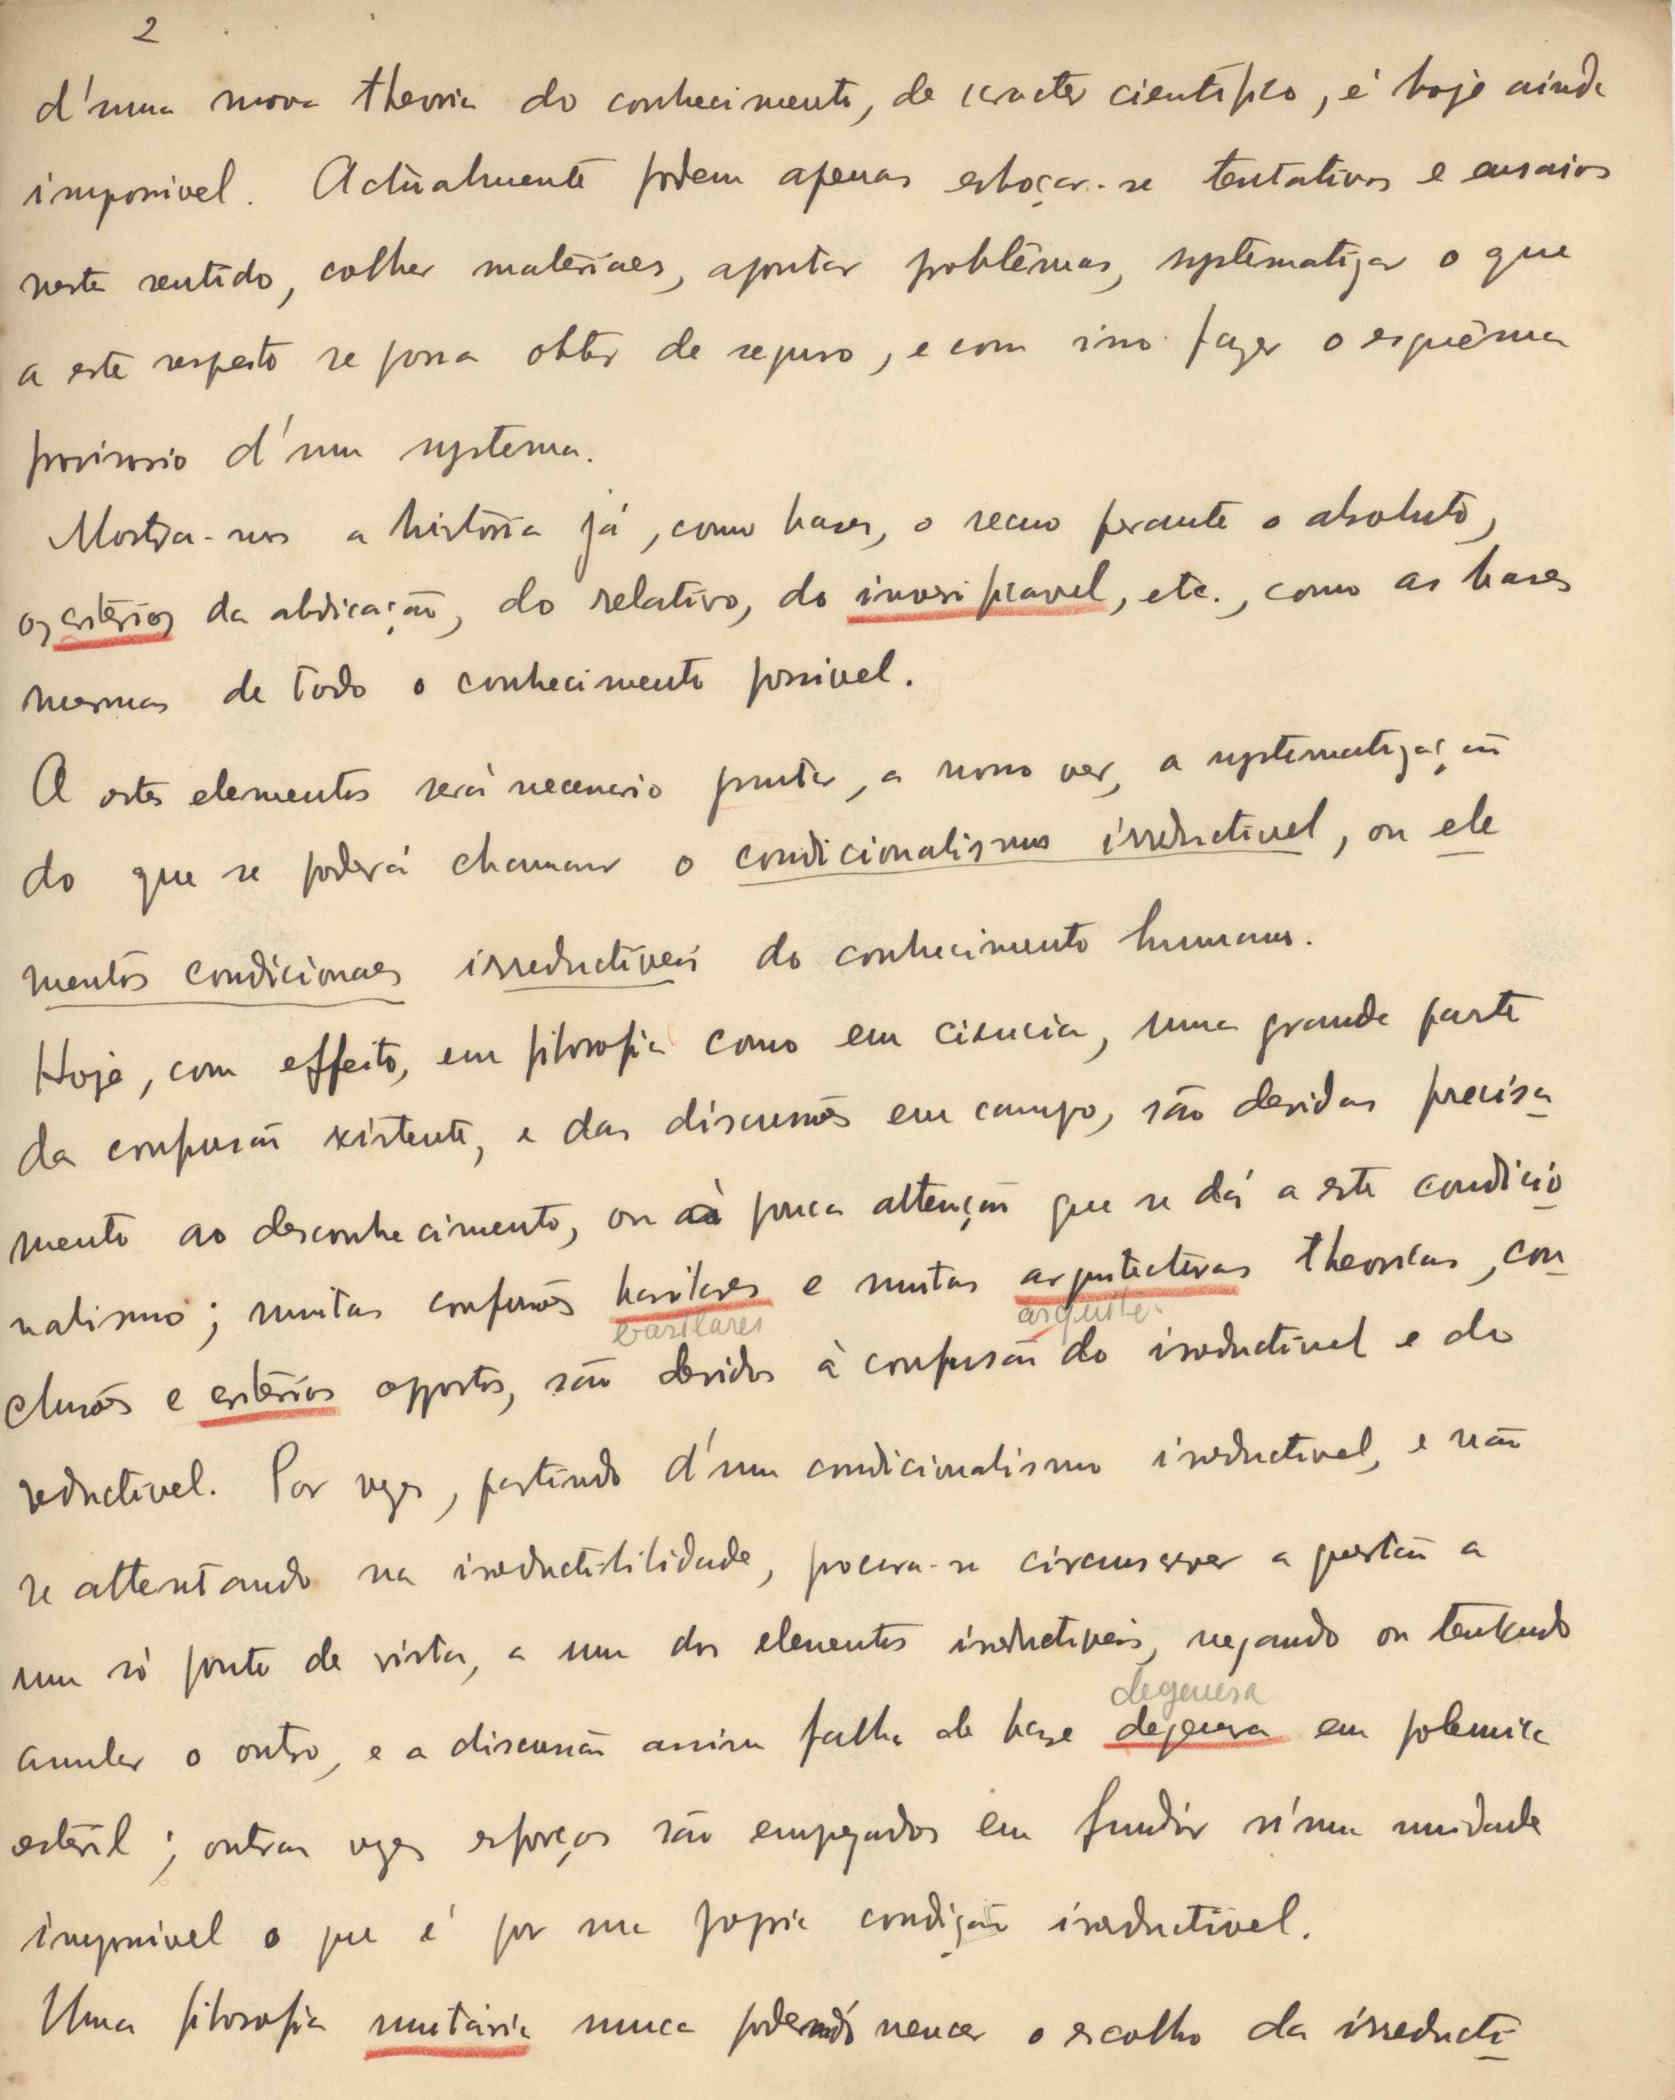 2
d'uma nova theoria do conhecimento, de caracter cientifico, é hoje ainda
impossivel. Actualmente podem apenas esboçar-se tentativas e ensaios
neste sentido, colher materiaes, apontar problêmas, systematizar o que
a este respeito se possa obter de seguro, e com isso fazer o esquêma
provisorio d'um systema.
Mostra-nos a historia já, como bases, o recuo perante o absoluto,
os critérios da abdicação, do relativo, do inverificavel, etc., como as bases
mesmas de todo o conhecimento possivel.
A estes elementos será necessario juntar, a nosso ver, a systematização
do que se poderá chamar o condicionalismo irreductivel, ou ele
mentos condicionaes irreductiveis do conhecimento humano.
Hoje, com effeito, em filosofia como em ciencia, uma grande parte
da confusão existente, e das discussões em campo, são devidas precisa
mente ao desconhecimento, ou à pouca attenção que se dá a este condicio
nalismo; muitas confusões basilares e muitas arquitectivas theoricas, con
basilares arquite
clusões e critérios oppostos, são devidos à confusão do irreductivel e do
reductivel. Por vezes, partindo d'um condicionalismo irreductivel, e não
se attentando na irreductibilidade, procura-se circunscrever a questão a
um só ponto de vista, a um dos elementos irreductiveis, negando ou tentando
degenera
annular o outro, e a discussão assim falha de base degenera em polemica
estéril; outras vezes esforços são empregados em fundir n'uma unidade
impossivel o que é por sua propria condição irreductivel.
Uma filosofia unitária nunca poderá vencer o escolho da irreducti